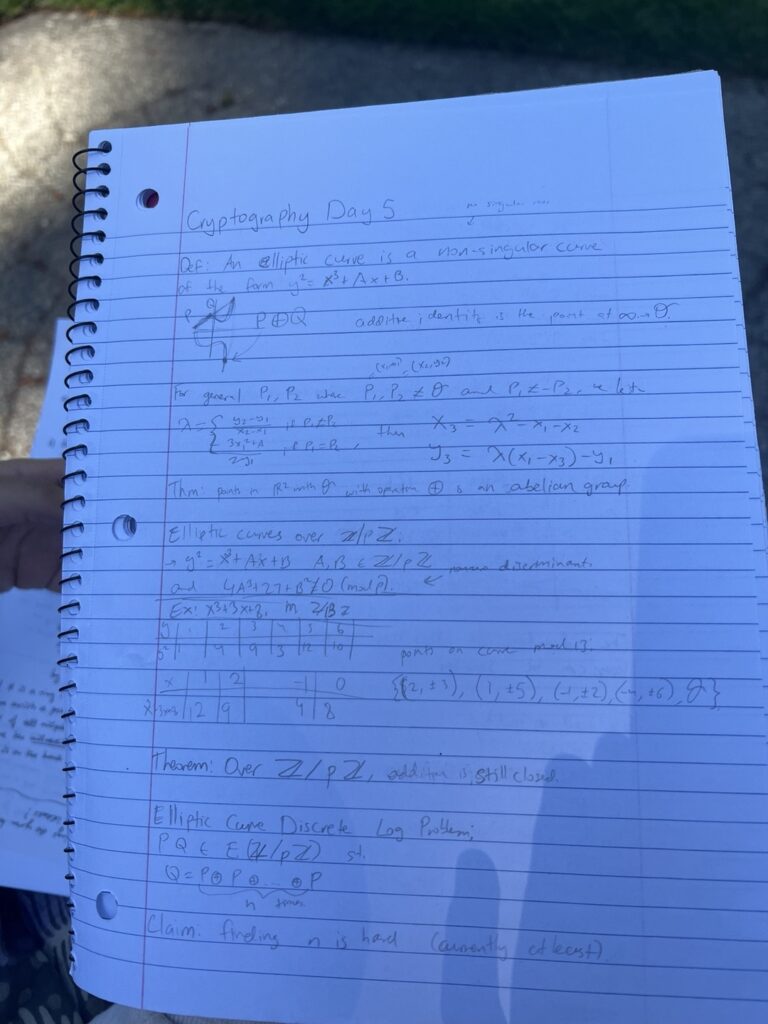 Cryptography Day 5
Def: An elliptic curve is a non-singular curve
of the form y² = x³ + Ax + B.
P Q P⊕Q additive identity is the point at ∞ → O.
(x₁,y₁), (x₂,y₂)
For general P₁, P₂ where P₁, P₂ ≠ O and P₁ ≠ -P₂, we let
λ = { (y₂-y₁)/(x₂-x₁) if P₁≠P₂ then x₃ = λ² - x₁ - x₂
(3x₁²+A)/(2y₁), if P₁=P₂, y₃ = λ(x₁-x₃) - y₁
Thm: points in ℝ² with O with operation ⊕ is an abelian group.
Elliptic curves over ℤ/pℤ.
→ y² = x³ + Ax + B A, B ∈ ℤ/pℤ discriminant.
and 4A³+27+B²≠0 (mod p). ←
Ex: x³+3x+8, in ℤ/13ℤ
y | 1 | 2 | 3 | 4 | 5 | 6
y² | 1 | 4 | 9 | 3 | 12 | 10 points on curve mod 13:
x | 1 | 2 | -1 | 0 {(2, ±3), (1, ±5), (-1, ±2), (-4, ±6), O}
x³+3x+8 | 12 | 9 | 4 | 8
Theorem: Over ℤ/pℤ, addition is still closed.
Elliptic Curve Discrete Log Problem:
P Q ∈ E(ℤ/pℤ) st.
Q = P⊕P⊕...⊕P
n times
Claim: finding n is hard (currently at least)